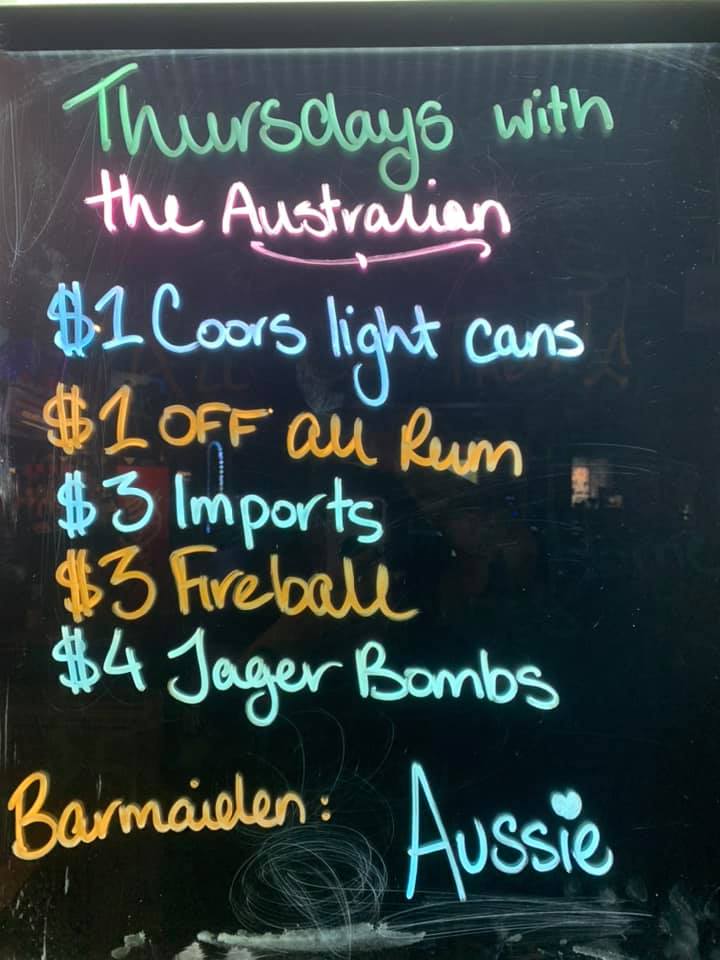 Thursdays with
the Australian
$1 Coors light cans
$1 OFF all Rum
$3 Imports
$3 Fireball
$4 Jager Bombs
Barmaiden: Aussie